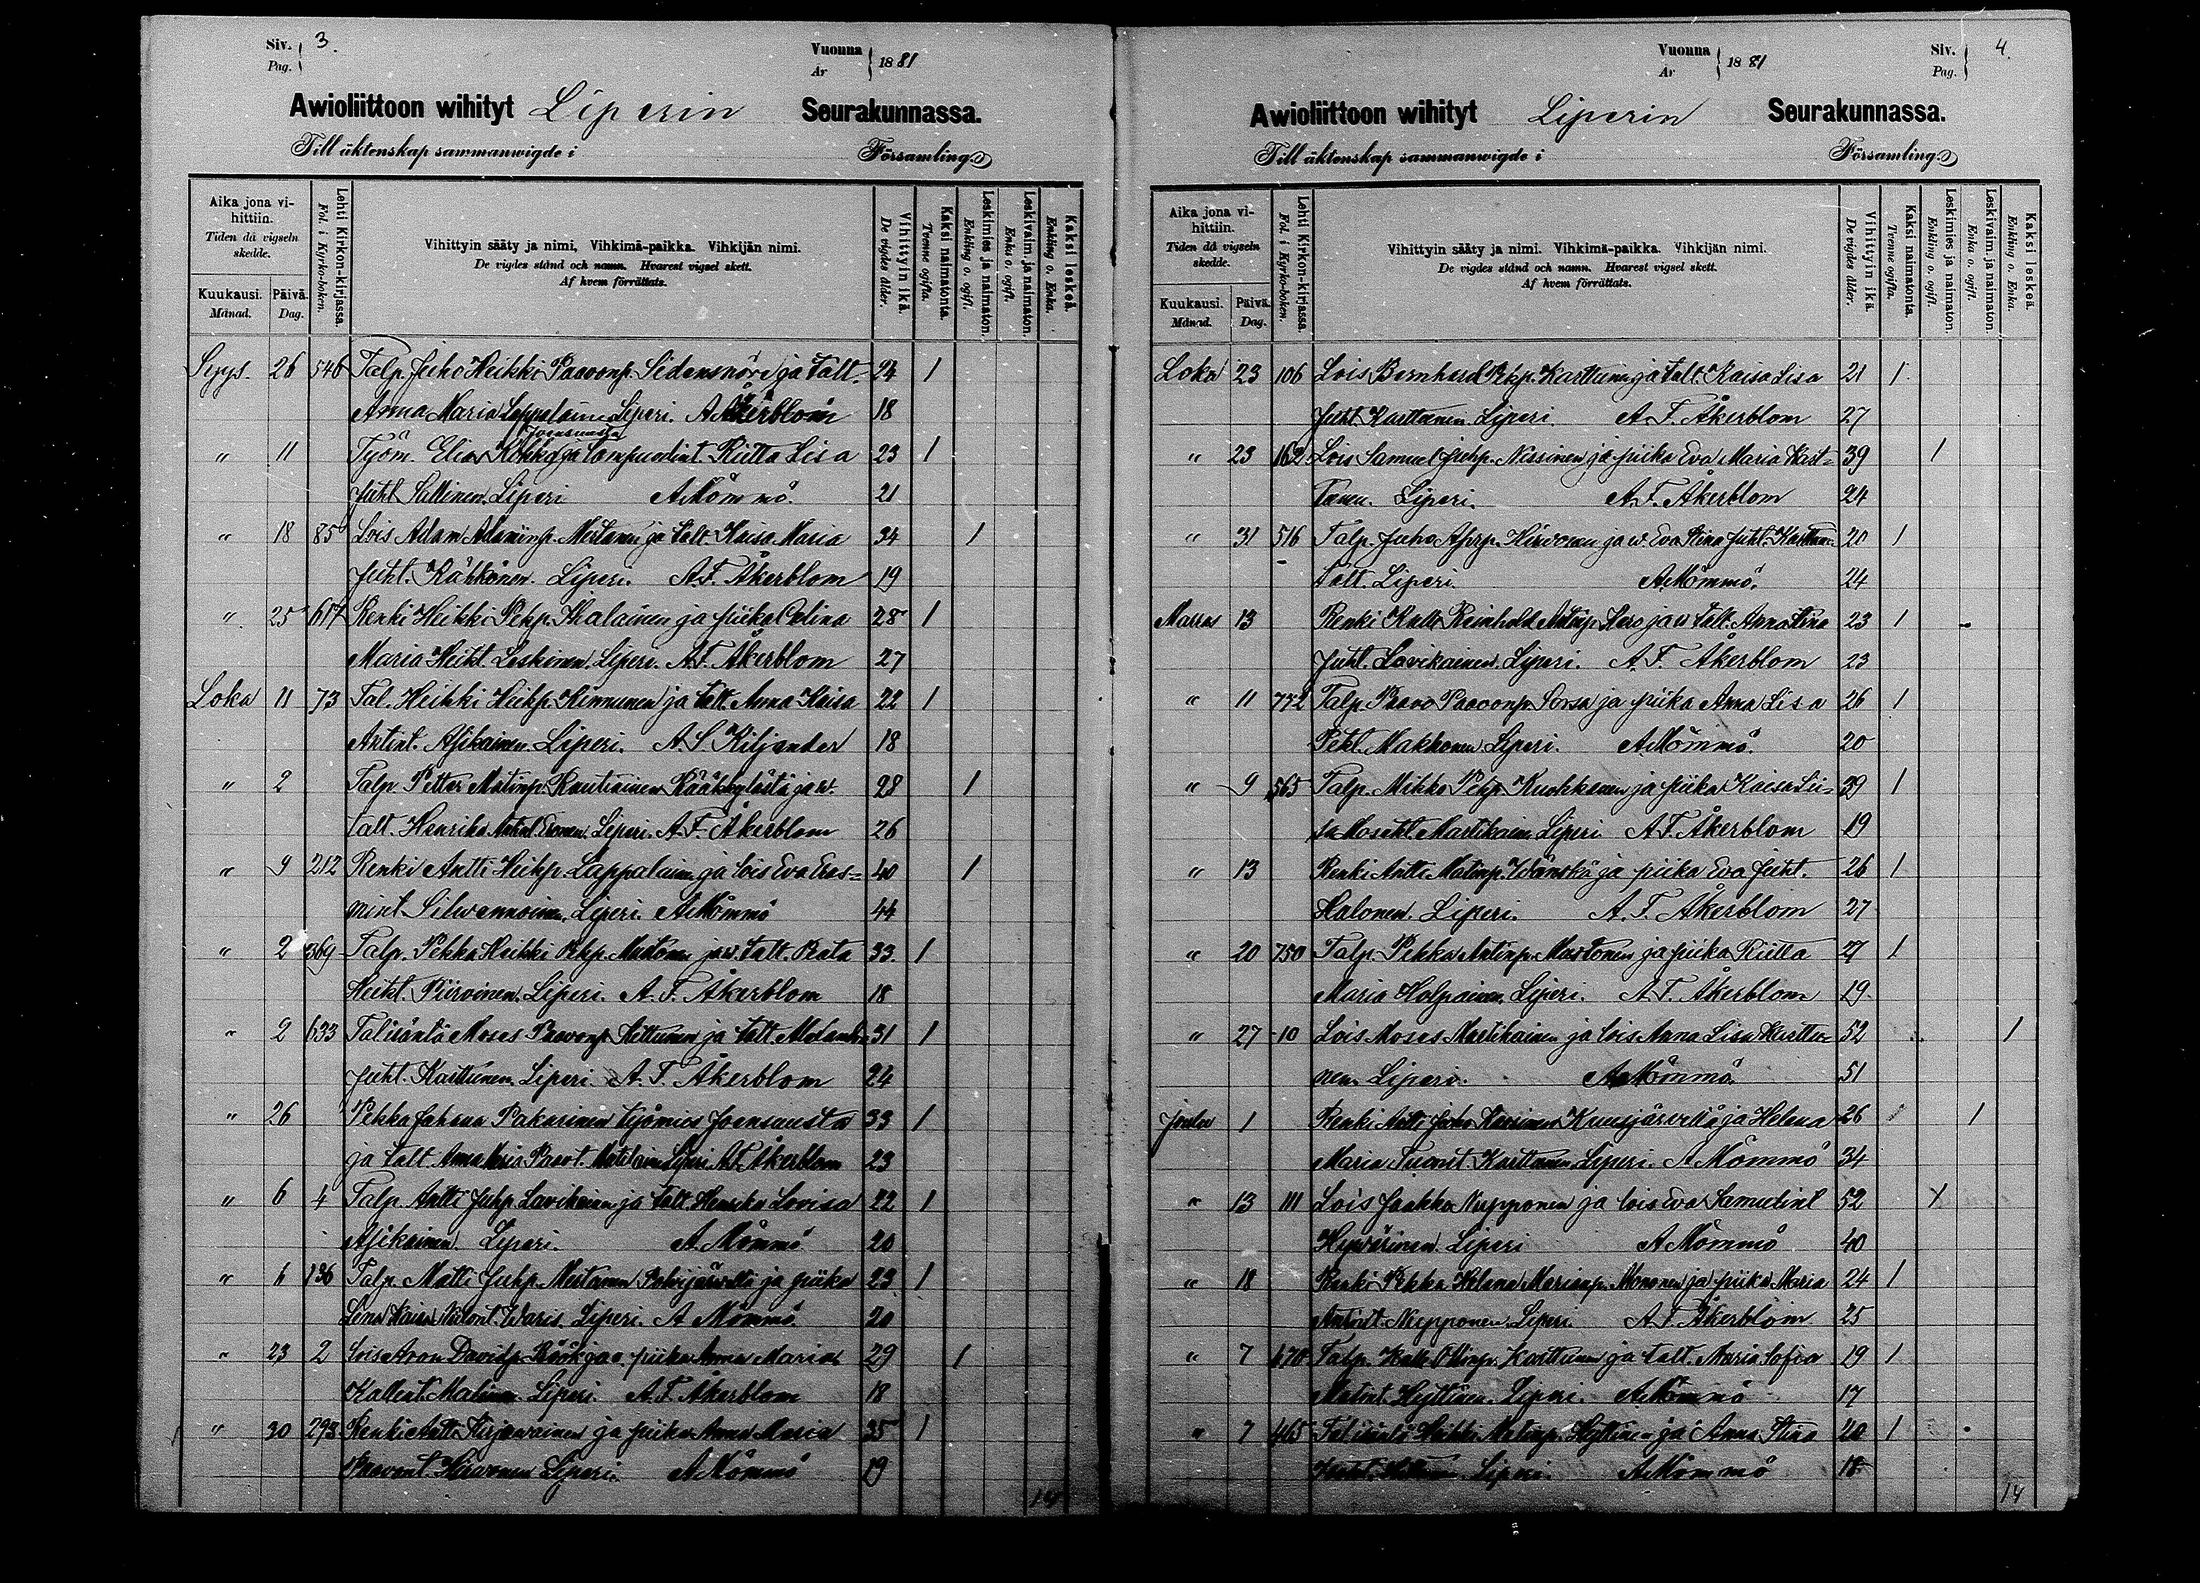 Siv. 3.
Pag.
Vuonna 1881
År
Awioliittoon wihityt Liperin Seurakunnassa.
Till äktenskap sammanwigde i Församling.
Aika jona vihittiin.
Tiden då vigseln skedde.
Kuukausi. Månad.
Päivä. Dag.
Lehti Kirkon-kirjassa. Fol. i Kyrko-boken.
Vihittyin sääty ja nimi, Vihkimä-paikka. Vihkijän nimi.
De vigdes stånd och namn. Hvarest vigsel skett.
Af hvem förrättats.
Vihittyin ikä. De vigdes ålder.
Kaksi naimatonta. Tvenne ogifta.
Leskimies ja naimaton. Enkling o. ogift.
Leskivaim. ja naimaton. Enka o. ogift.
Kaksi leskeä. Enkling o. Enka.
Syys. 26 546 Talp. Juho Heikki Paavonp. Sidensnöre ja talt. 24 1
Anna Maria Lappalainen Liperi. A Åkerblom 18
Joensuusta
" 11 Työm. Elias Kokko ja Riitta Lisa 23 1
Juht. Sallinen. Liperi A Mömmö. 21
" 18 85 Lois Adam Adaminp. Mustonen ja talt. Kaisa Maria 34 1
Juht. Kähkönen. Liperi. A.F. Åkerblom 19
" 25 617 Renki Heikki Pekp. Ihalainen ja piika Celina 28 1
Maria Heikt. Leskinen. Liperi. A.F. Åkerblom 27
Loka 11 73 Tal. Heikki Heikp. Kinnunen ja talt. Anna Kaisa 22 1
Antint. Asikainen. Liperi. A S Kiljander 18
" 2 Talp. Petter Matinp. Rautiainen Rääkkylästä ja w. 28 1
talt. Henrika Antint. Eronen. Liperi. A.F. Åkerblom 26
" 9 212 Renki Antti Heikp. Lappalainen ja lois Eva Eras= 40 1
mint. Silwennoinen, Liperi. A Mömmö 44
" 2 369 Talp. Pekka Heikki Pekp. Mustonen ja w. talt. Beata 33 1
Heikt. Piiroinen. Liperi. A.F. Åkerblom 18
" 2 633 Talisäntä Moses Paavonp. Kettunen ja talt. 31 1
Juht. Karttunen. Liperi. A.F. Åkerblom 24
" 26 Pekka Johana Pakarinen työmies Joensuusta 33 1
ja talt. Anna Maria Paavt. Liperi A.F. Åkerblom 23
" 6 4 Talp. Antti Juhp. Lavikainen ja talt. Henrika Lovisa 22 1
Asikainen. Liperi. A. Mömmö 20
" 6 136 Talp. Matti Juhp. Mustonen Polvijärveltä ja piika 23 1
Lena Kaisa Waris. Liperi. A Mömmö 20
" 23 2 Lois Aron Davidp. Köök ja piika Anna Maria 29 1
Kallent. Malinen. Liperi. A.F. Åkerblom 18
" 30 293 Renki Antti Kirjavainen ja piika Anna Maria 35 1
Paavont. Hirvonen Liperi. A Mömmö 19
14
Vuonna 1881
År
Siv. 4.
Pag.
Awioliittoon wihityt Liperin Seurakunnassa.
Till äktenskap sammanwigde i Församling.
Aika jona vihittiin.
Tiden då vigseln skedde.
Kuukausi. Månad.
Päivä. Dag.
Lehti Kirkon-kirjassa. Fol. i Kyrko-boken.
Vihittyin sääty ja nimi. Vihkimä-paikka. Vihkijän nimi.
De vigdes stånd och namn. Hvarest vigsel skett.
Af hvem förrättats.
Vihittyin ikä. De vigdes ålder.
Kaksi naimatonta. Tvenne ogifta.
Leskimies ja naimaton. Enkling o. ogift.
Leskivaim. ja naimaton. Enka o. ogift.
Kaksi leskeä. Enkling o. Enka
Loka 23 106 Lois Bernhard Pekp. Karttunen ja talt. Kaisa Lisa 21 1
Juht. Karttunen. Liperi. A.F. Åkerblom 27
" 23 162 Lois Samuel Juhp. Nissinen ja piika Eva Maria Kart= 39 1
tunen. Liperi. A.F. Åkerblom 24
" 31 516 Talp. Juho Hirvonen ja w. Eva Stina Juht. Karttunen 20 1
talt. Liperi. A. Mömmö. 24
Marras 13 Renki Kalle Reinhold Antinp. Saro ja w talt. Anna Stina 23 1
Juht. Lavikainen. Liperi. A.F. Åkerblom 23
" 11 772 Talp. Paavo Paavonp. Sorsa ja piika Anna Lisa 26 1
Pekt. Makkonen Liperi. A Mömmö. 20
" 9 565 Talp. Mikko Pekp. Kuokkanen ja piika Kaisa Lii= 39 1
sa Mosekt. Martikainen Liperi A.F. Åkerblom 19
" 13 Renki Antti Matinp. Wänskä ja piika Eva Juht. 26 1
Halonen. Liperi. A.F. Åkerblom 27
" 20 750 Talp. Pekka Antinp. Mustonen ja piika Riitta 27 1
Maria Holpainen. Liperi. A.F. Åkerblom 19
" 27 10 Lois Moses Martikainen ja lois Anna Lisa Karttu= 52 1
nen. Liperi. A Mömmö. 51
Joulu 1 Renki Antti Juho Kuusjärveltä ja Helena 26 1
Maria Karttunen Liperi. A Mömmö 34
" 13 111 Lois Jaakko Nupponen ja lois Eva Samuelint 52 1
Hyvärinen Liperi A Mömmö 40
" 18 Renki Pekka Helena Marianp. Mononen ja piika Maria 24 1
Antint. Nupponen. Liperi A.F. Åkerblom 25
" 7 670 Talp. Kalle Ollinp. Karttunen ja talt. Maria Sofia 19 1
Matint. Hyttinen. Liperi. A Mömmö 17
" 7 465 Talisäntä Heikki Matinp. Hyttinen ja Anna Stina 20 1
Liperi. A Mömmö 18
14